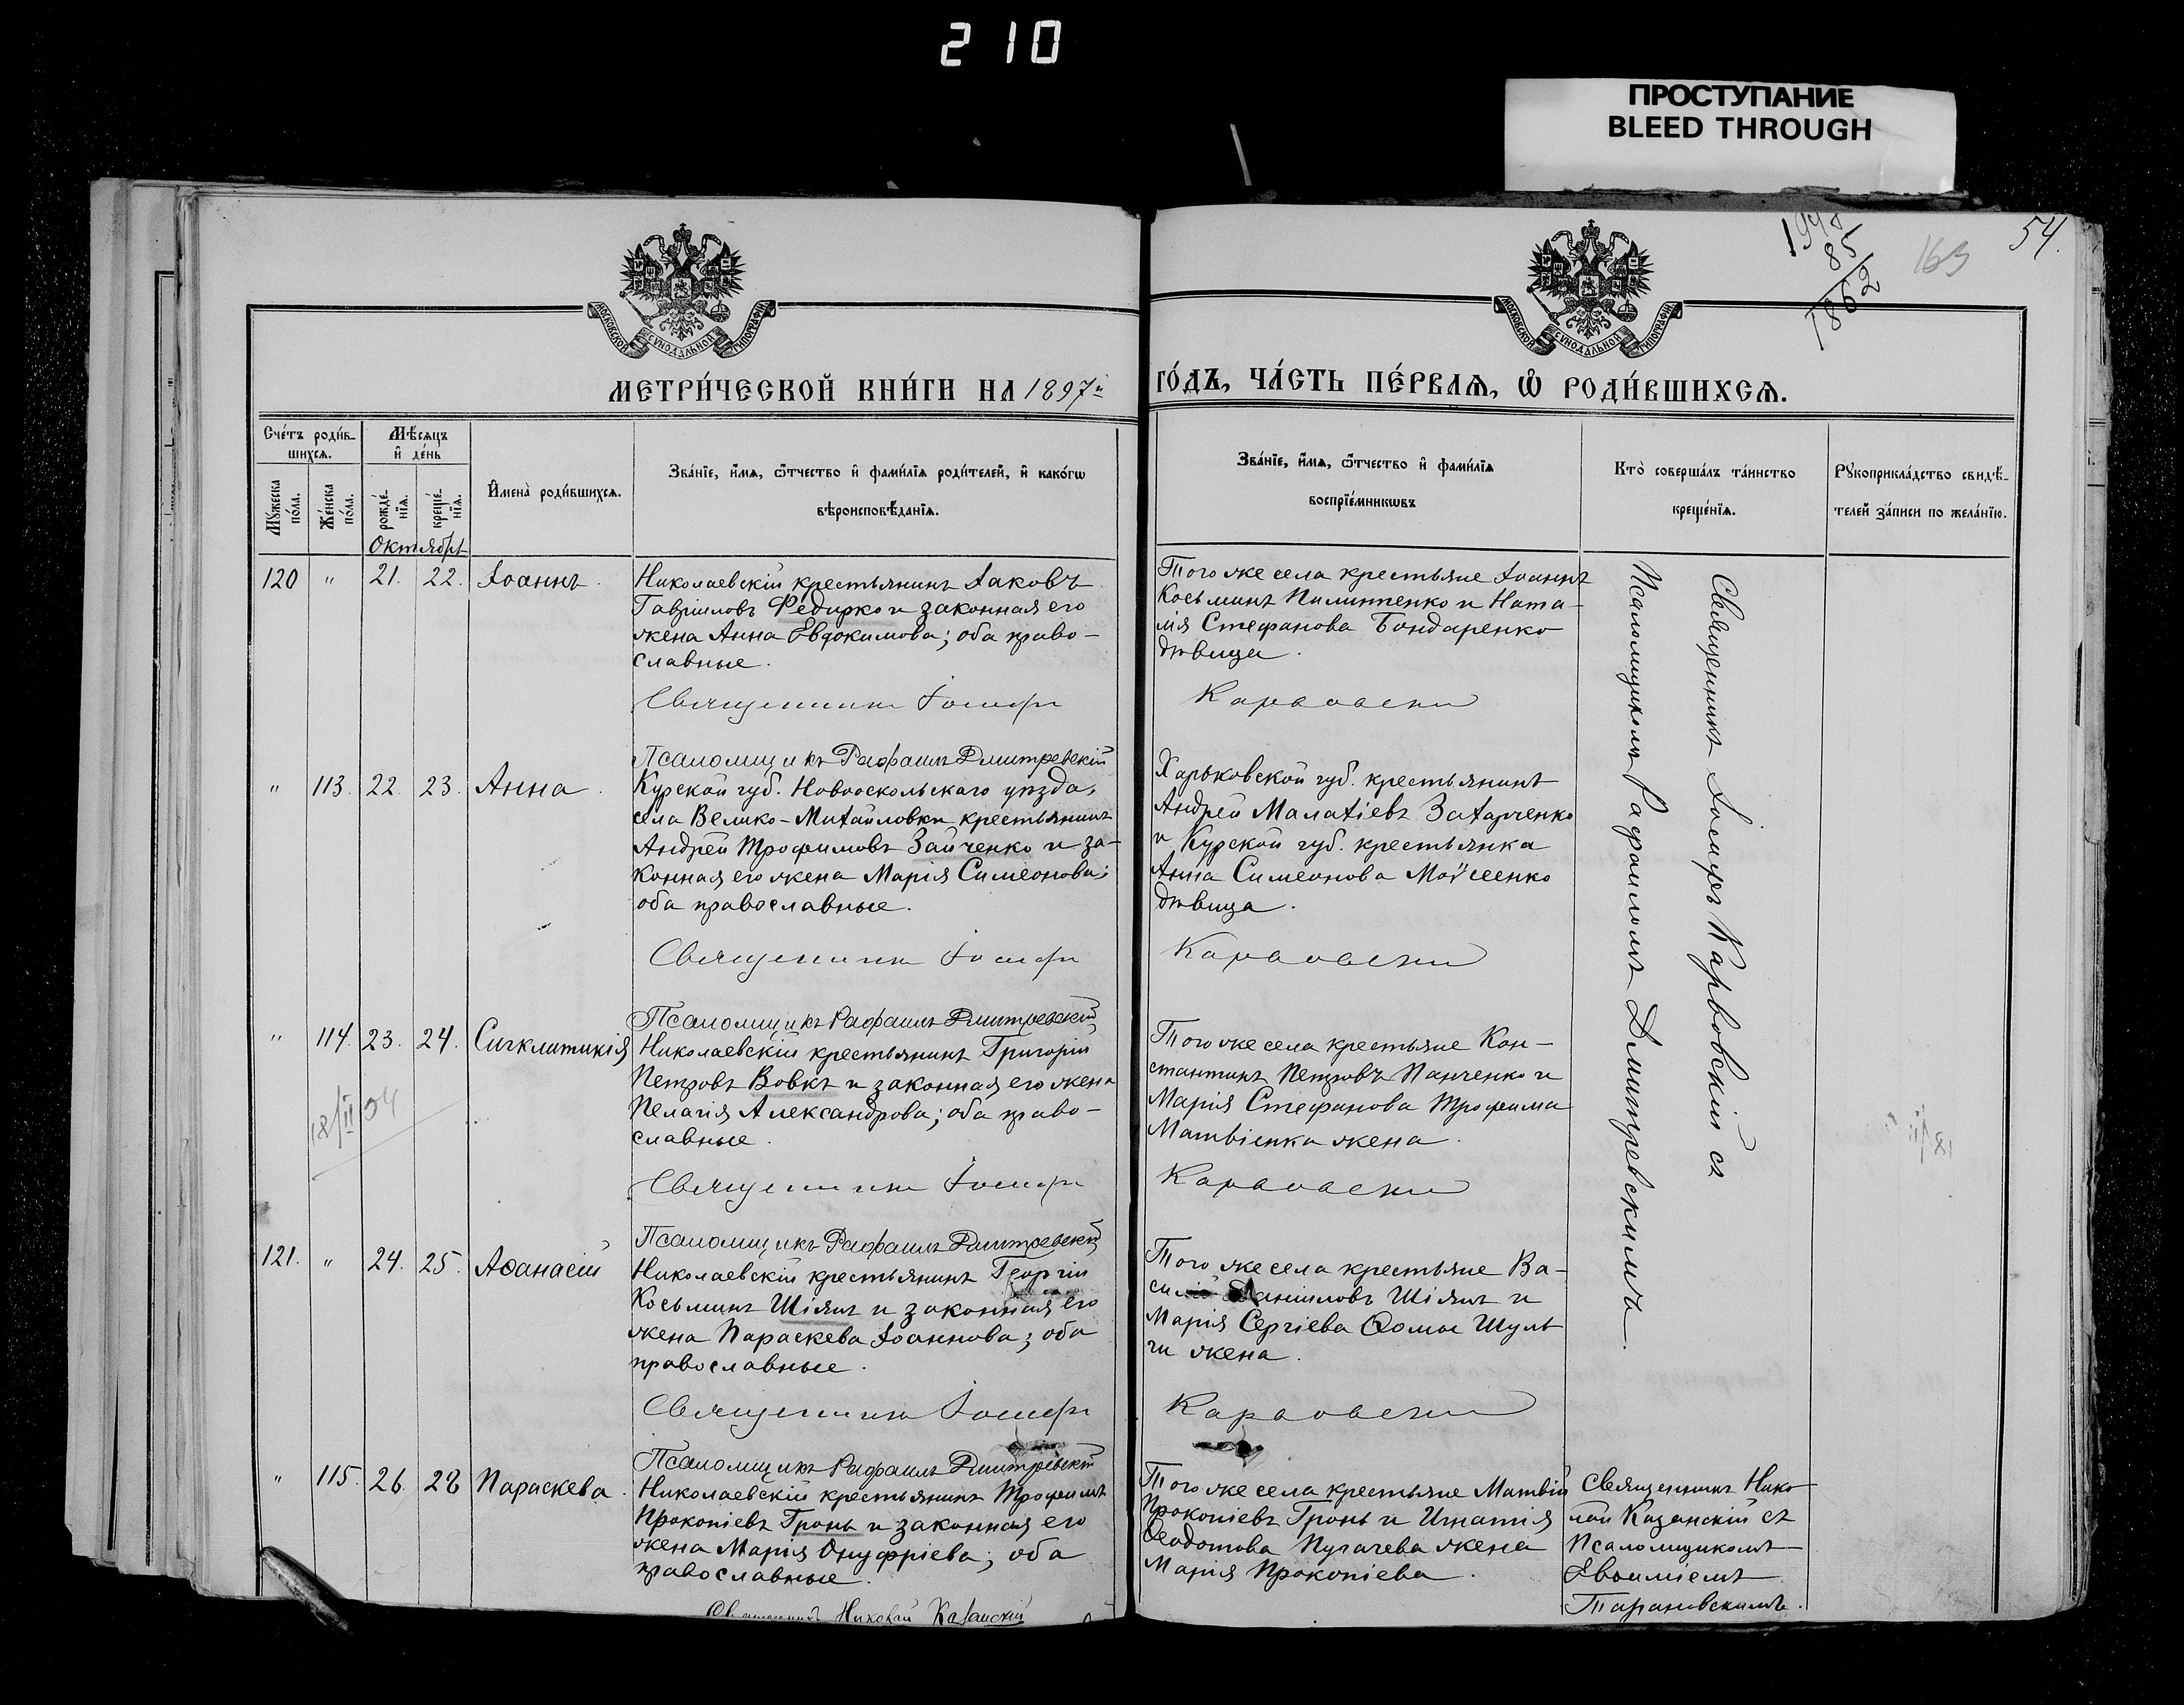 210
ПРОСТУПАНИЕ
BLEED THROUGH
85
1862
163
54.
МОСКОВСКОЙ СѴНОДАЛЬНОЙ ТИПОГРАФІИ
МОСКОВСКОЙ СѴНОДАЛЬНОЙ ТИПОГРАФІИ
МЕТРИ́ЧЕСКОЙ КНИ́ГИ НА 1897й
ГО́ДЪ, ЧА́СТЬ ПЕ́РВАѦ, Ѽ РОДИ́ВШИХСѦ.
Сче́тъ роди́в-
шихсѧ.
Мꙋ́жеска по́ла.
Же́нска по́ла.
Мѣ́сѧцъ
и҆ де́нь
рожде́-нїѧ.
креще́-нїѧ.
Октябрь
И҆мена̀ роди́вшихсѧ.
Зва́нїе, и҆́мѧ, ѻ҆́тчество и҆ фами́лїѧ роди́телей, и҆ како́гѡ
вѣроисповѣ́данїѧ.
Зва́нїе, и҆́мѧ, ѻ҆́тчество и҆ фами́лїѧ
воспрїе́мникѡвъ
Кто̀ соверша́лъ та́инство
креще́нїѧ.
Рꙋкоприкла́дство свидѣ́-
телей за́писи по жела́нїю.
120 " 21. 22. Іоаннъ.
Николаевскій крестьянинъ Іаковъ
Гавріиловъ Федирко и законная его
жена Анна Евдокимова; оба право-
славные.
Священникъ Іосифъ
Псаломщикъ Рафаилъ Дмитревскій
Того же села крестьяне Іоаннъ
Косьминъ Пилипенко и Ната-
лія Стефанова Бондаренко
дѣвица.
Карвовскій
Священникъ Іосифъ Карвовскій съ
Псаломщикомъ Рафаиломъ Дмитревскимъ.
" 113. 22. 23. Анна.
Курской губ. Новооскольскаго уѣзда,
села Велико-Михайловки крестьянинъ
Андрей Трофимовъ Зайченко и за-
конная его жена Марія Симеонова;
оба православные.
Священникъ Іосифъ
Псаломщикъ Рафаилъ Дмитревскій
Харьковской губ. крестьянинъ
Андрей Малахіевъ Захарченко
и Курской губ. крестьянка
Анна Симеонова Моисеенко
дѣвица.
Карвовскій
" 114. 23. 24. Сигклитикія
Николаевскій крестьянинъ Григорій
Петровъ Вовкъ и законная его жена
Пелагія Александрова; оба право-
славные.
Священникъ Іосифъ
Псаломщикъ Рафаилъ Дмитревскій
Того же села крестьяне Кон-
стантинъ Петровъ Панченко и
Марія Стефанова Трофима
Матвіенка жена.
Карвовскій
121. " 24. 25. Аѳанасій
Николаевскій крестьянинъ Георгій
Косьминъ Шіянъ и законная его
жена Параскева Іоаннова; оба
православные.
Священникъ Іосифъ
Псаломщикъ Рафаилъ Дмитревскій
Того же села крестьяне Ва-
силій Даниловъ Шіянъ и
Марія Сергіева Ѳомы Шуль
ги жена.
Карвовскій
" 115. 26. 28 Параскева.
Николаевскій крестьянинъ Трофимъ
Прокопіевъ Гронь и законная его
жена Марія Онуфріева; оба
православные.
Священникъ Николай Казанскій
Того же села крестьяне Матвій
Прокопіевъ Гронь и Игнатія
Ѳеодотова Пугачева жена
Марія Прокопіева.
Священникъ Нико
лай Казанскій съ
Псаломщикомъ
Евѳиміемъ
Тарановскимъ.